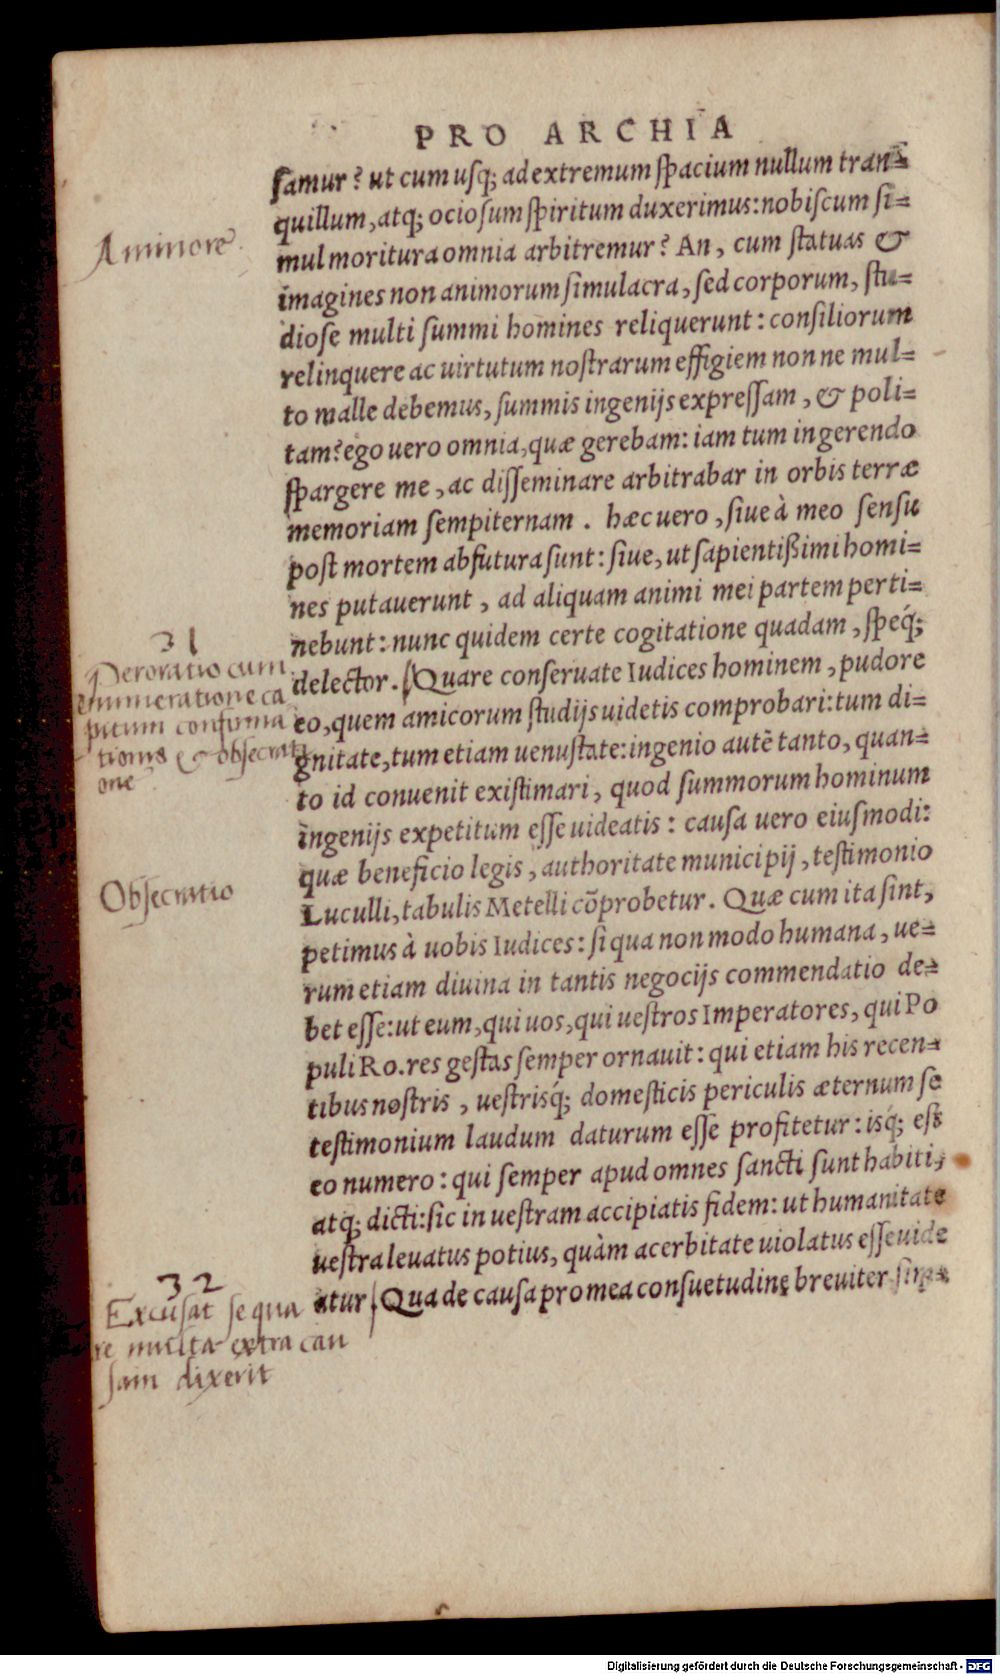 PRO ARCHIA
samur? ut cum usq; ad extremum spacium nullum tran=
quillum, atq; ociosum spiritum duxerimus: nobiscum si=
A minore
mul moritura omnia arbitremur? An, cum statuas &
imagines non animorum simulacra, sed corporum, stu=
diose multi summi homines reliquerunt: consiliorum
relinquere ac uirtutum nostrarum effigiem non ne mul=
to malle debemus, summis ingenijs expressam, & poli=
tam? ego uero omnia, quæ gerebam: iam tum in gerendo
spargere me, ac disseminare arbitrabar in orbis terræ
memoriam sempiternam. hæc uero, siue à meo sensu
post mortem abfutura sunt: siue, ut sapientißimi homi=
nes putauerunt, ad aliquam animi mei partem perti=
nebunt: nunc quidem certe cogitatione quadam, speq́;
delector. Quare conseruate Iudices hominem, pudore
eo, quem amicorum studijs uidetis comprobari: tum di=
gnitate, tum etiam uenustate: ingenio autē tanto, quan=
to id conuenit existimari, quod summorum hominum
ingenijs expetitum esse uideatis: causa uero eiusmodi:
quæ beneficio legis, authoritate municipij, testimonio
Luculli, tabulis Metelli cōprobetur. Quæ cum ita sint,
petimus à uobis Iudices: si qua non modo humana, ue=
rum etiam diuina in tantis negocijs commendatio de=
bet esse: ut eum, qui uos, qui uestros Imperatores, qui Po
puli Ro. res gestas semper ornauit: qui etiam his recen=
tibus nostris, uestrisq́; domesticis periculis æternum se
testimonium laudum daturum esse profitetur: isq́; est
eo numero: qui semper apud omnes sancti sunt habiti,
atq; dicti: sic in uestram accipiatis fidem: ut humanitate
uestra leuatus potius, quàm acerbitate uiolatus esse uide
atur. Qua de causa pro mea consuetudine breuiter sim=
31
Peroratio cum
enumeratione ca
pitum confirma
tionis & obsecrati
one
Obsecratio
32
Excusat se qua
re multa extra cau
sam dixerit
Digitalisierung gefördert durch die Deutsche Forschungsgemeinschaft - DFG